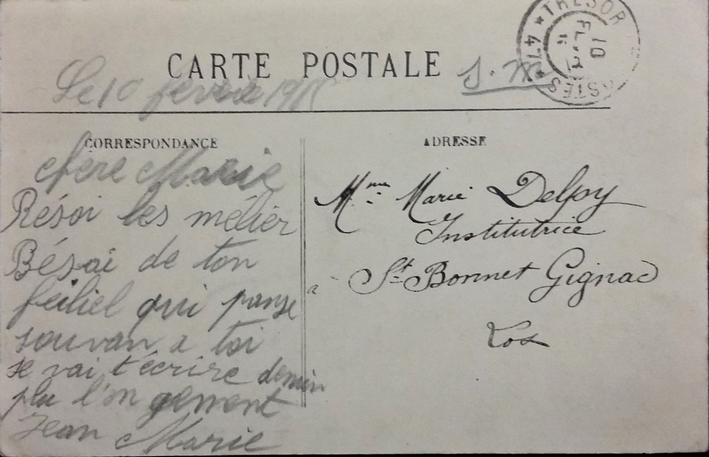 TRESOR
10
47
POSTES
CARTE POSTALE
S. M
Le 10 février 191
CORRESPONDANCE
chère Marie
Résoi les mélier
Bésai de ton
feiliel qui panse
souvan a toi
se vai t'écrire demin
plu l'on gement
Jean Marie
ADRESSE
Mme Marie Delpy
Institutrice
a St Bonnet Gignac
Lot